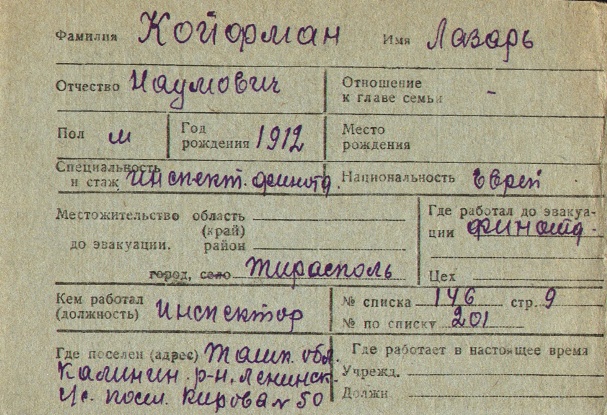 Фамилия Койфман Имя Лазарь
Отчество Наумович Отношение к главе семьи -
Пол м Год рождения 1912 Место рождения
Специальность и стаж инспект. финотд. Национальность еврей
Местожительство область
(край)
до эвакуации. район
город, село Тирасполь
Где работал до эвакуа-
ции финотд.
Цех
Кем работал
(должность) инспектор
№ списка 146 стр. 9
№ по списку 201
Где поселен (адрес) Ташк. обл.
Калинин. р-н. Ленинск.
с. посл. Кирова № 50
Где работает в настоящее время
Учрежд.
Должн.